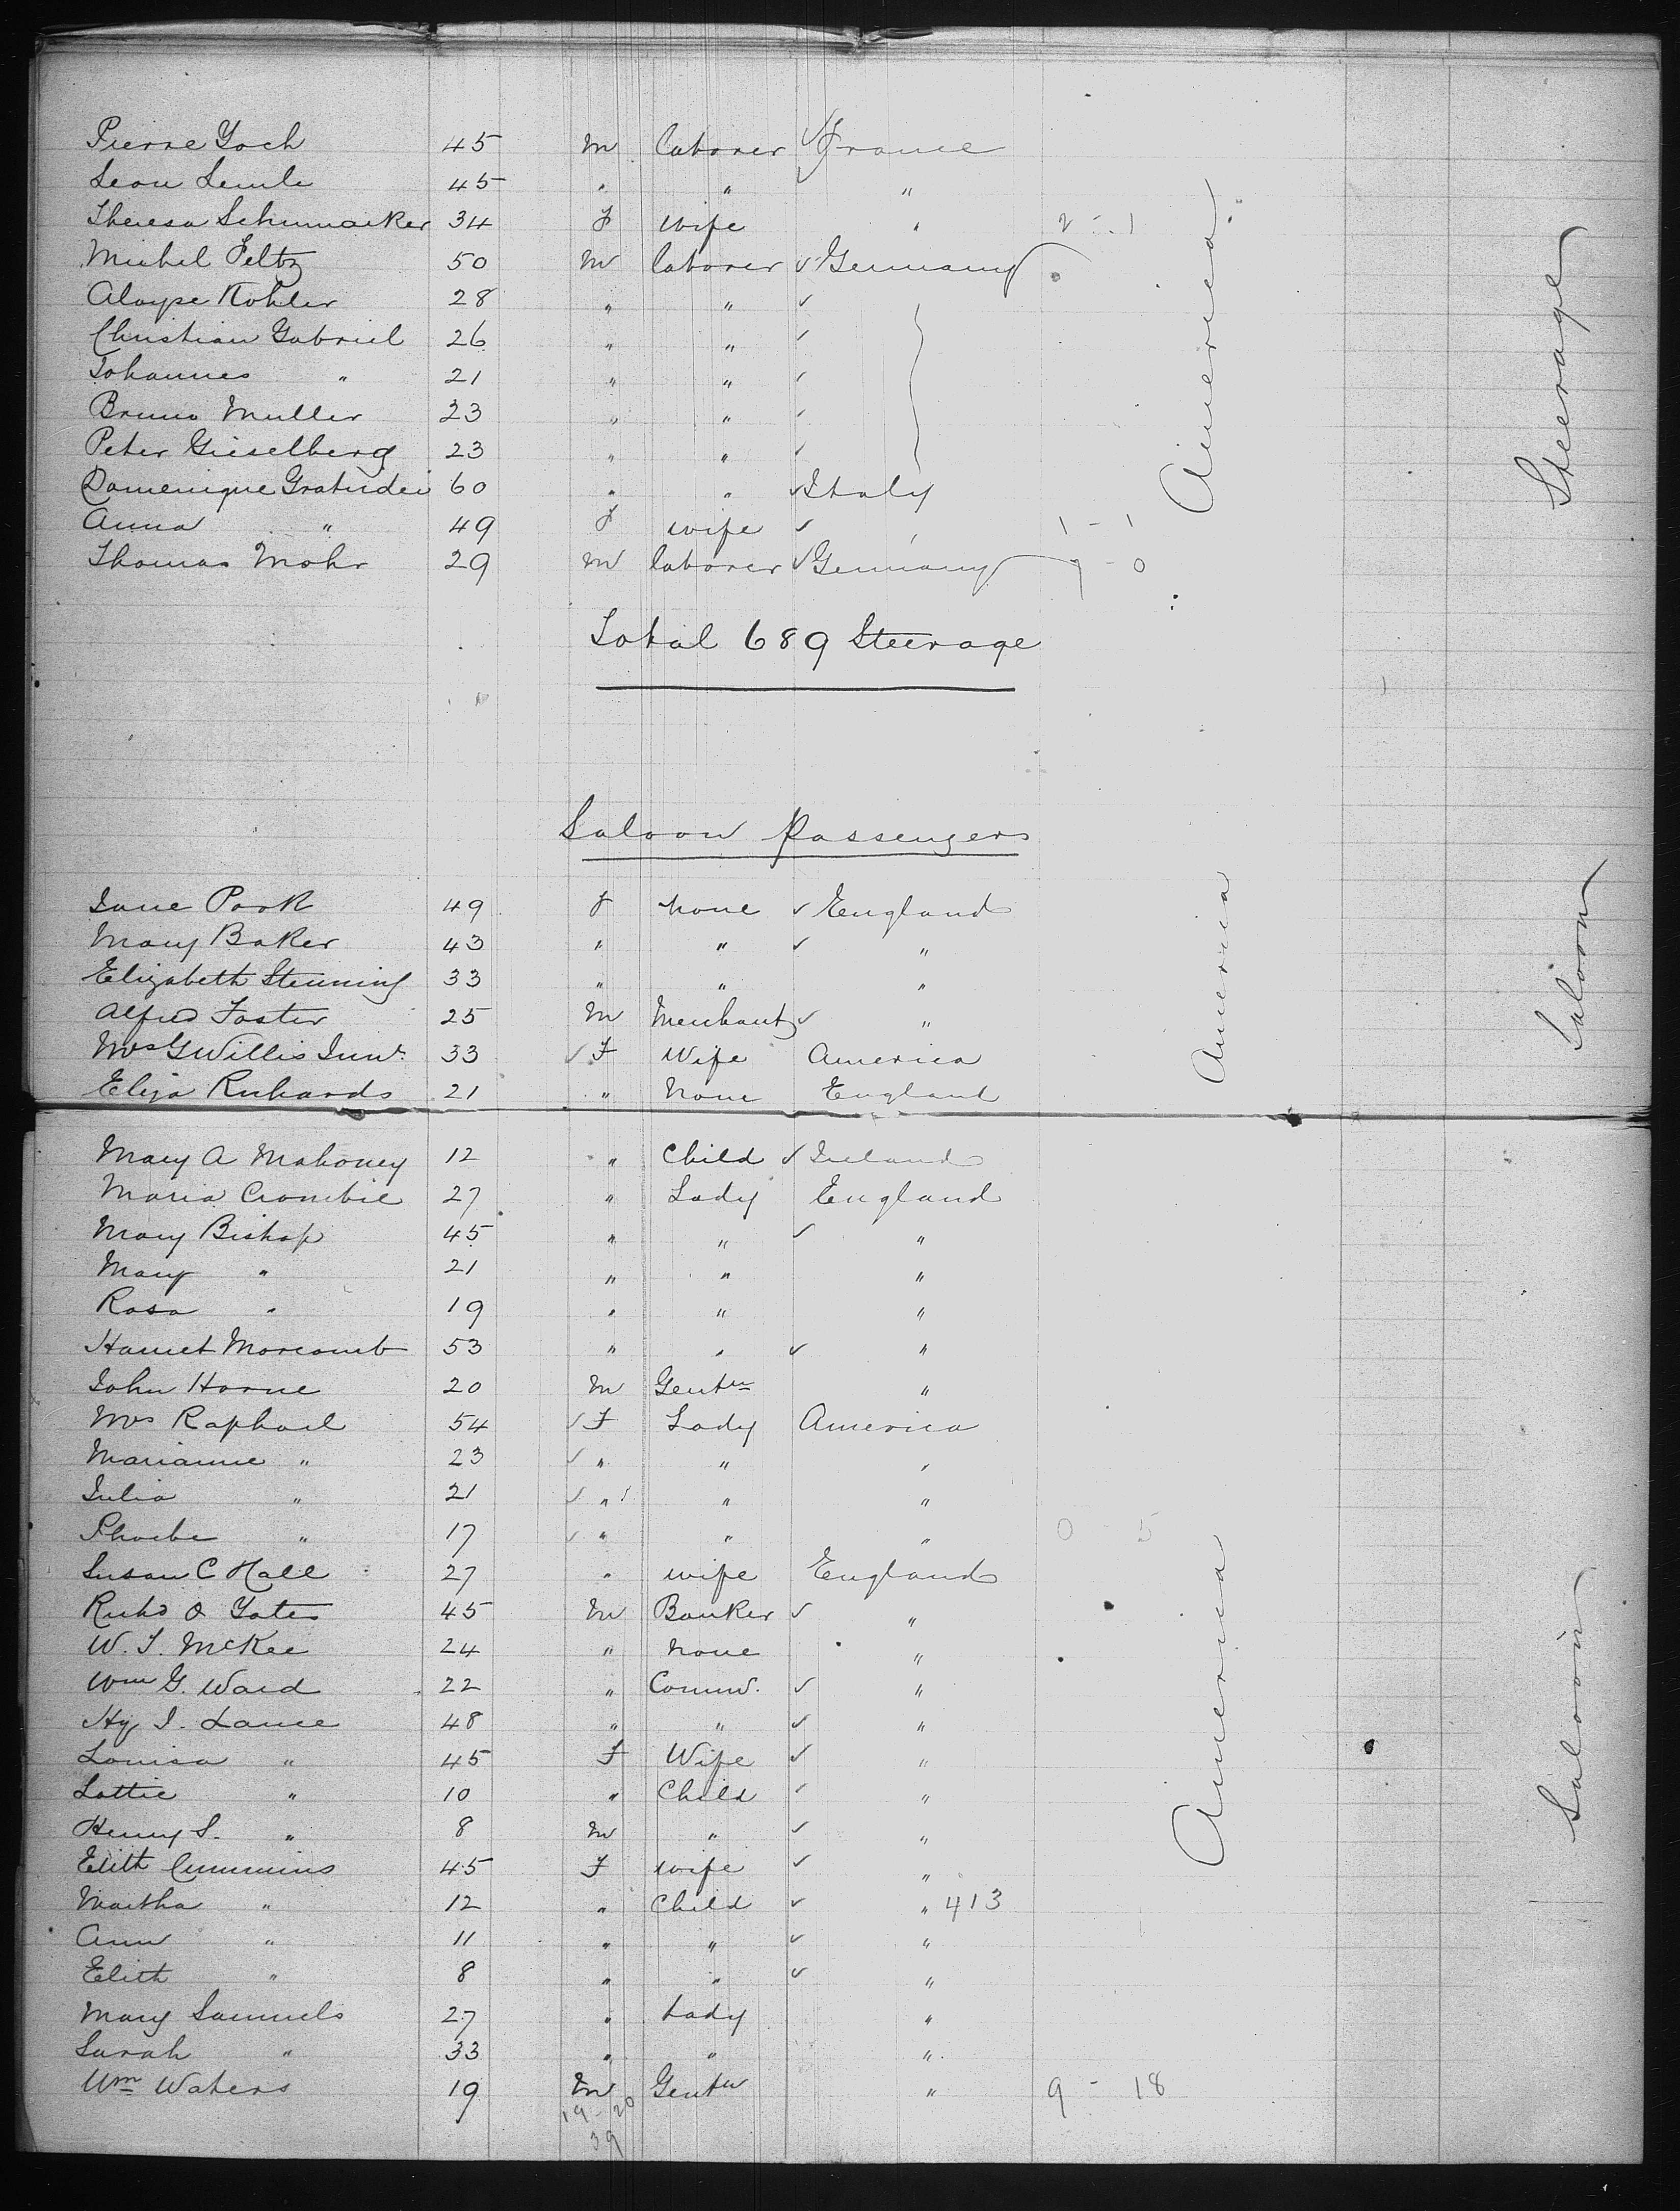 Pierre Yoch 45 m laborer ✓ France
Leon Lemle 45 " " ✓ "
Theresa Schumacker 34 f wife " 2 - 1
Michel Peltz 50 m laborer ✓ Germany
Aloyse Kohler 28 " " ✓
Christian Gabriel 26 " " ✓
Johannes " 21 " " ✓
Bruno Muller 23 " " ✓
Peter Gieselberg 23 " " ✓
Domenique Gratudei 60 " " ✓ Italy
Anna " 49 f wife ✓ " 1 - 1
Thomas Mohr 29 m laborer ✓ Germany 9 - 0
America
Steerage
Total 689 Steerage
Saloon Passengers
Jane Park 49 f none ✓ England
Mary Baker 43 " " ✓ "
Elizabeth Stenning 33 " " "
Alfred Foster 25 m Merchant ✓ "
Mrs G Willis Junr. 33 ✓ F Wife America
Eliza Richards 21 " None England
America
Saloon
Mary A Mahoney 12 " Child ✓ Ireland
Maria Crombie 27 " Lady England
Mary Bishop 45 " " ✓ "
Mary " 21 " " "
Rosa " 19 " " "
Harriet Morcomb 53 " " ✓ "
John Horne 20 m Gentn "
Mrs Raphael 54 ✓ F Lady America
Marianne " 23 ✓ " " "
Julia " 21 ✓ " " "
Phoebe " 17 ✓ " " " 0 - 5
Susan C Hall 27 " wife England
Richd O Yates 45 m Banker ✓ "
W. J. McKee 24 " none "
Wm G. Ward 22 " Comml. ✓ "
Hy J. Lance 48 " " ✓ "
Louisa " 45 F Wife ✓ "
Lottie " 10 " Child ✓ "
Henry S. " 8 m " ✓ "
Edith Cummins 45 F wife ✓ "
Martha " 12 " Child ✓ " 413
Ann " 11 " " ✓ "
Edith " 8 " " ✓ "
Mary Samuels 27 " Lady "
Sarah " 33 " " "
Wm Waters 19 m Gentn " 9 - 18
19 - 20
39
America
Saloon